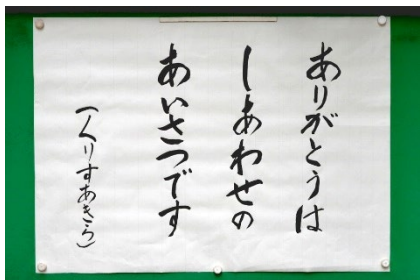 ありがとうは
しあわせの
あいさつです
（くりすあきら）